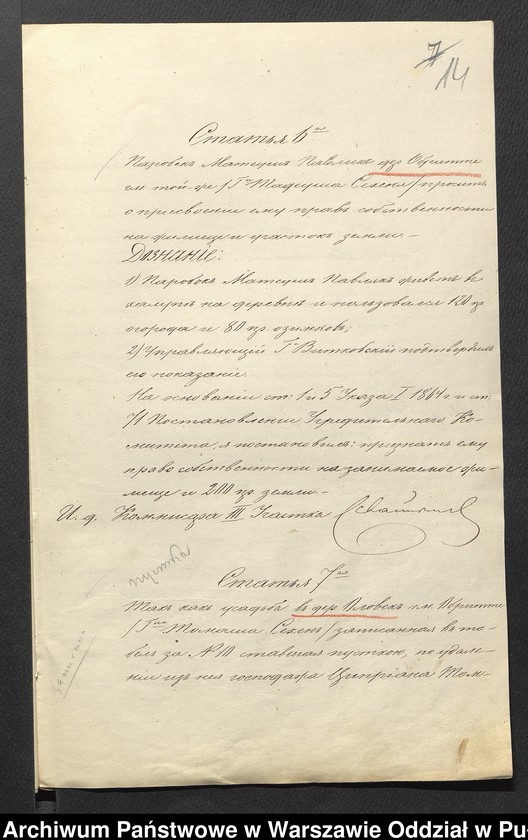 7
14
Статья 6ая
Паробок Матеуш Павляк дер. Обритте
им. той-же /Гна Тадеуша Секен/ просить
о присвоении ему права собственности
на жилище и участок земли.–
Дознаніе:
1) Паробок Матеуш Павляк живетъ въ
халупѣ на деревнѣ и пользовался 120 пр.
огорода и 80 пр. озимковъ;
2) Управляющій Г. Витковскій подтвердилъ
его показаніе.
На основаніи ст. 1 и 5 Указа I 1864 г. и ст.
71 Постановленія Учредительнаго Ко-
митета, я постановилъ: признать ему
право собственности на занимаемое жи-
лище и 200 пр. земли.–
И. д. Коммисара III Участка
Статья 7ая
Такъ какъ усадьба въ дер. Пловскъ им. Обритте
/Гна Томаша Секен/ записанная въ та-
бели за № 10 ставшая пусткою, по удале-
ніи изъ нея господара Ципріана Том-